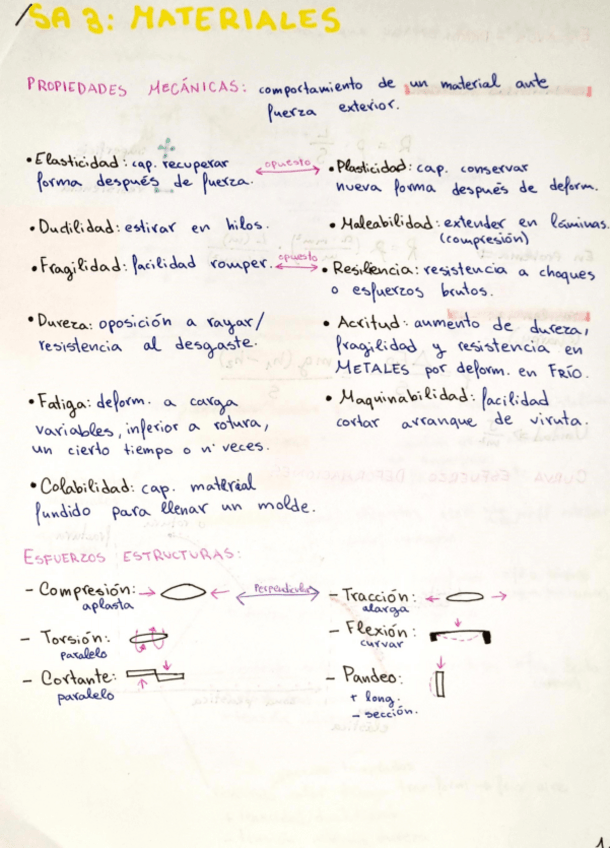 /SA 3: MATERIALES
PROPIEDADES MECÁNICAS: comportamiento de un material ante
fuerza exterior.
• Elasticidad: cap. recuperar
forma después de fuerza.
opuesto
• Plasticidad: cap. conservar
nueva forma después de deform.
• Ductilidad: estirar en hilos.
• Maleabilidad: extender en láminas.
(compresión)
• Fragilidad: facilidad romper.
opuesto
• Resiliencia: resistencia a choques
o esfuerzos brutos.
• Dureza: oposición a rayar/
resistencia al desgaste.
• Acritud: aumento de dureza,
fragilidad y resistencia en
METALES por deform. en FRÍO.
• Fatiga: deform. a carga
variables, inferior a rotura,
un cierto tiempo o nº veces.
• Maquinabilidad: facilidad
cortar arranque de viruta.
• Colabilidad: cap. material
fundido para llenar un molde.
ESFUERZOS ESTRUCTURAS:
- Compresión:
aplasta
Perpendicular
- Tracción:
alarga
- Torsión:
paralelo
- Flexión:
curvar
- Cortante:
paralelo
- Pandeo:
+ long.
- sección.
1